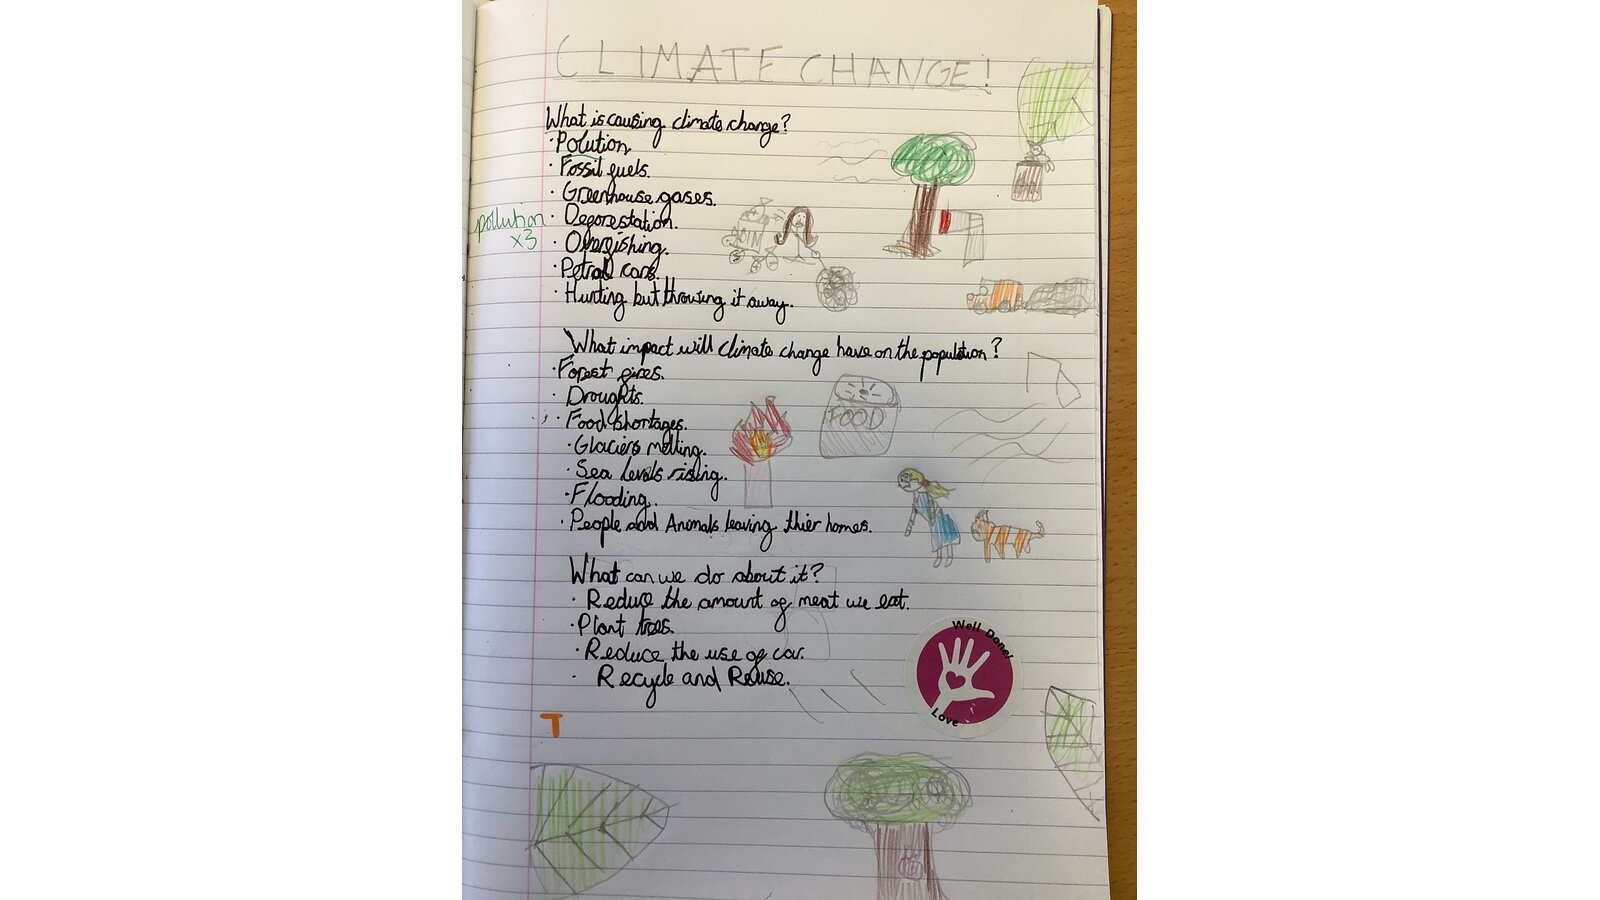 CLIMATE CHANGE!
What is causing climate change?
· Polution
· Fossil fuels.
· Greenhouse gases.
pollution
x3
· Deforestation.
· Overfishing.
· Petrol cars.
· Hunting but throwing it away.
What impact will climate change have on the population?
· Forest fires.
· Droughts.
· Food shortages.
FOOD
· Glaciers melting.
· Sea levels rising.
· Flooding.
· People and Animals leaving thier homes.
What can we do about it?
· Reduce the amount of meat we eat.
· Plant trees.
· Reduce the use of car.
· Recycle and Reuse.
Well Done!
Love
T